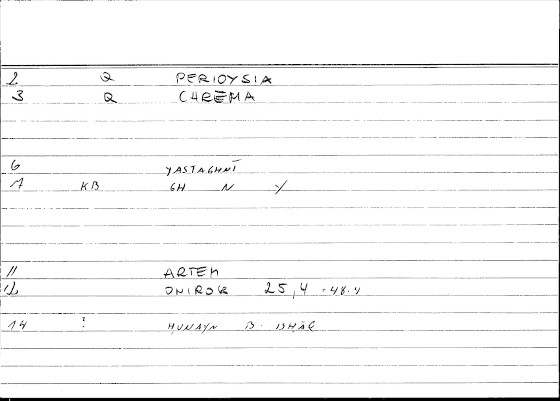 2 Q PERIOYSIA
3 Q CHRĒMA
6 YASTAGHNĪ
7 KB GH N Y
11 ARTEM
12 ONIROK 25,4 -48.4
14 ? ḤUNAYN B. ISḤĀQ